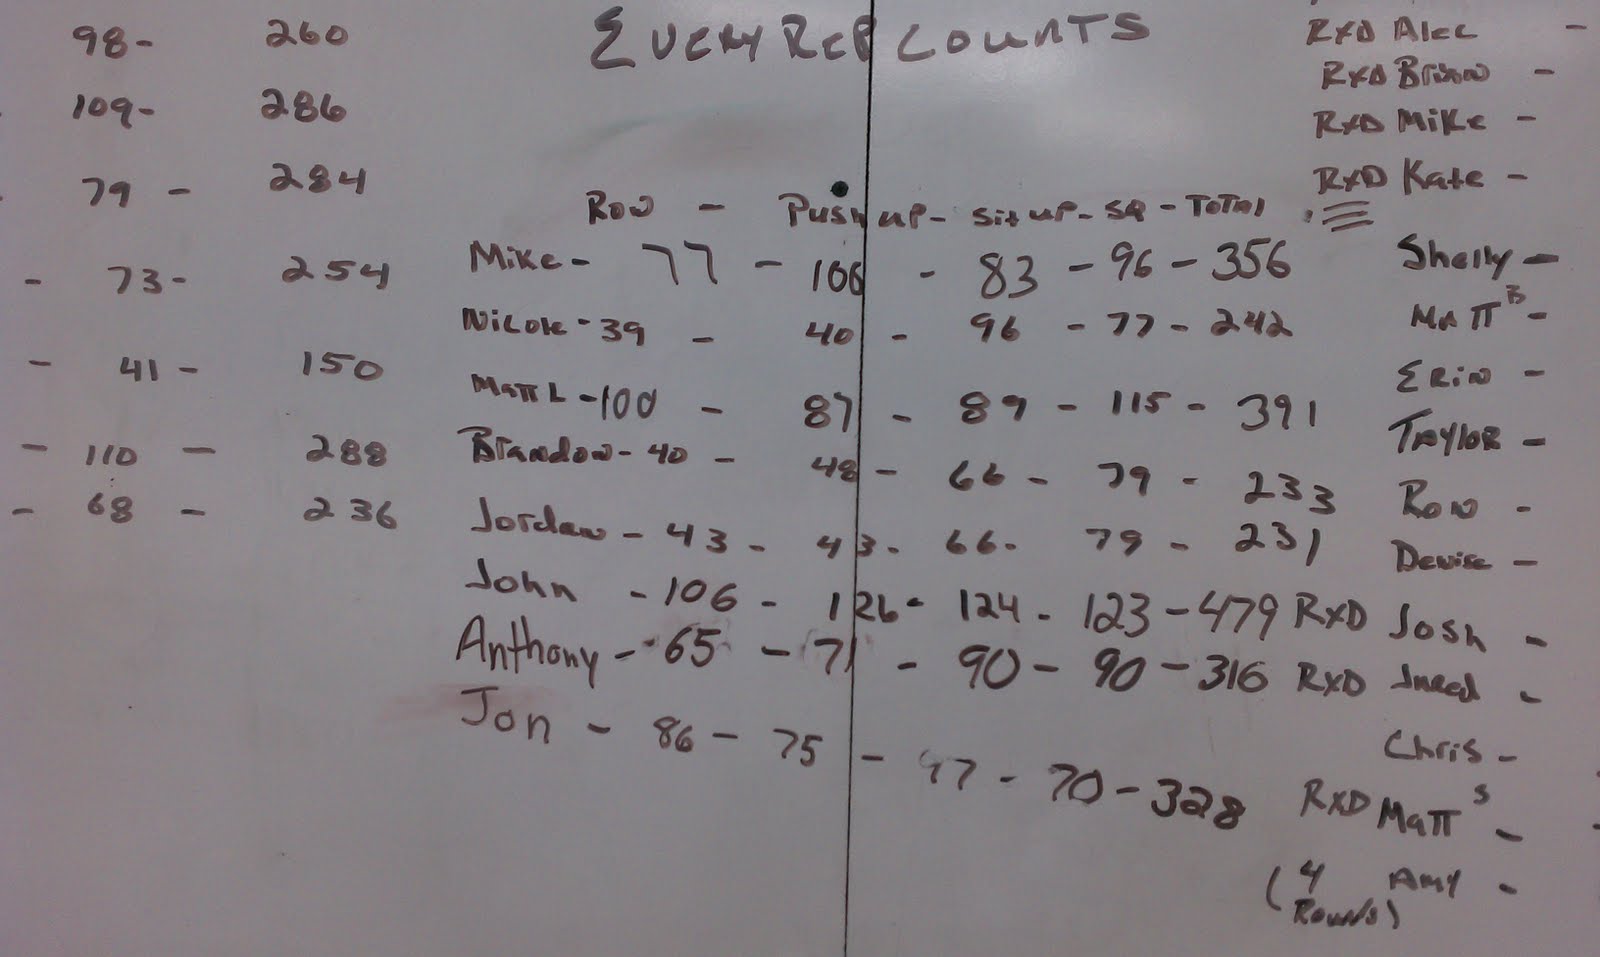 98- 260
109- 286
79 - 284
- 73- 254
- 41 - 150
- 110 - 288
- 68 - 236
EVERY REP COUNTS
Row - Push up - Sit up - SQ - Total
Mike - 77 - 100 - 83 - 96 - 356
Nicole - 39 - 40 - 96 - 77 - 242
Matt L - 100 - 87 - 89 - 115 - 391
Brandon - 40 - 48 - 66 - 79 - 233
Jordan - 43 - 43 - 66 - 79 - 231
John - 106 - 126 - 124 - 123 - 479
Anthony - 65 - 71 - 90 - 90 - 316
Jon - 86 - 75 - 97 - 70 - 328
RxD Alec -
RxD -
RxD Mike -
RxD Kate -
Shelly -
Matt B -
Erin -
Taylor -
Ron -
Denise -
RxD Josh -
RxD Jared -
Chris -
RxD Matt S -
(4 Rounds) Amy -